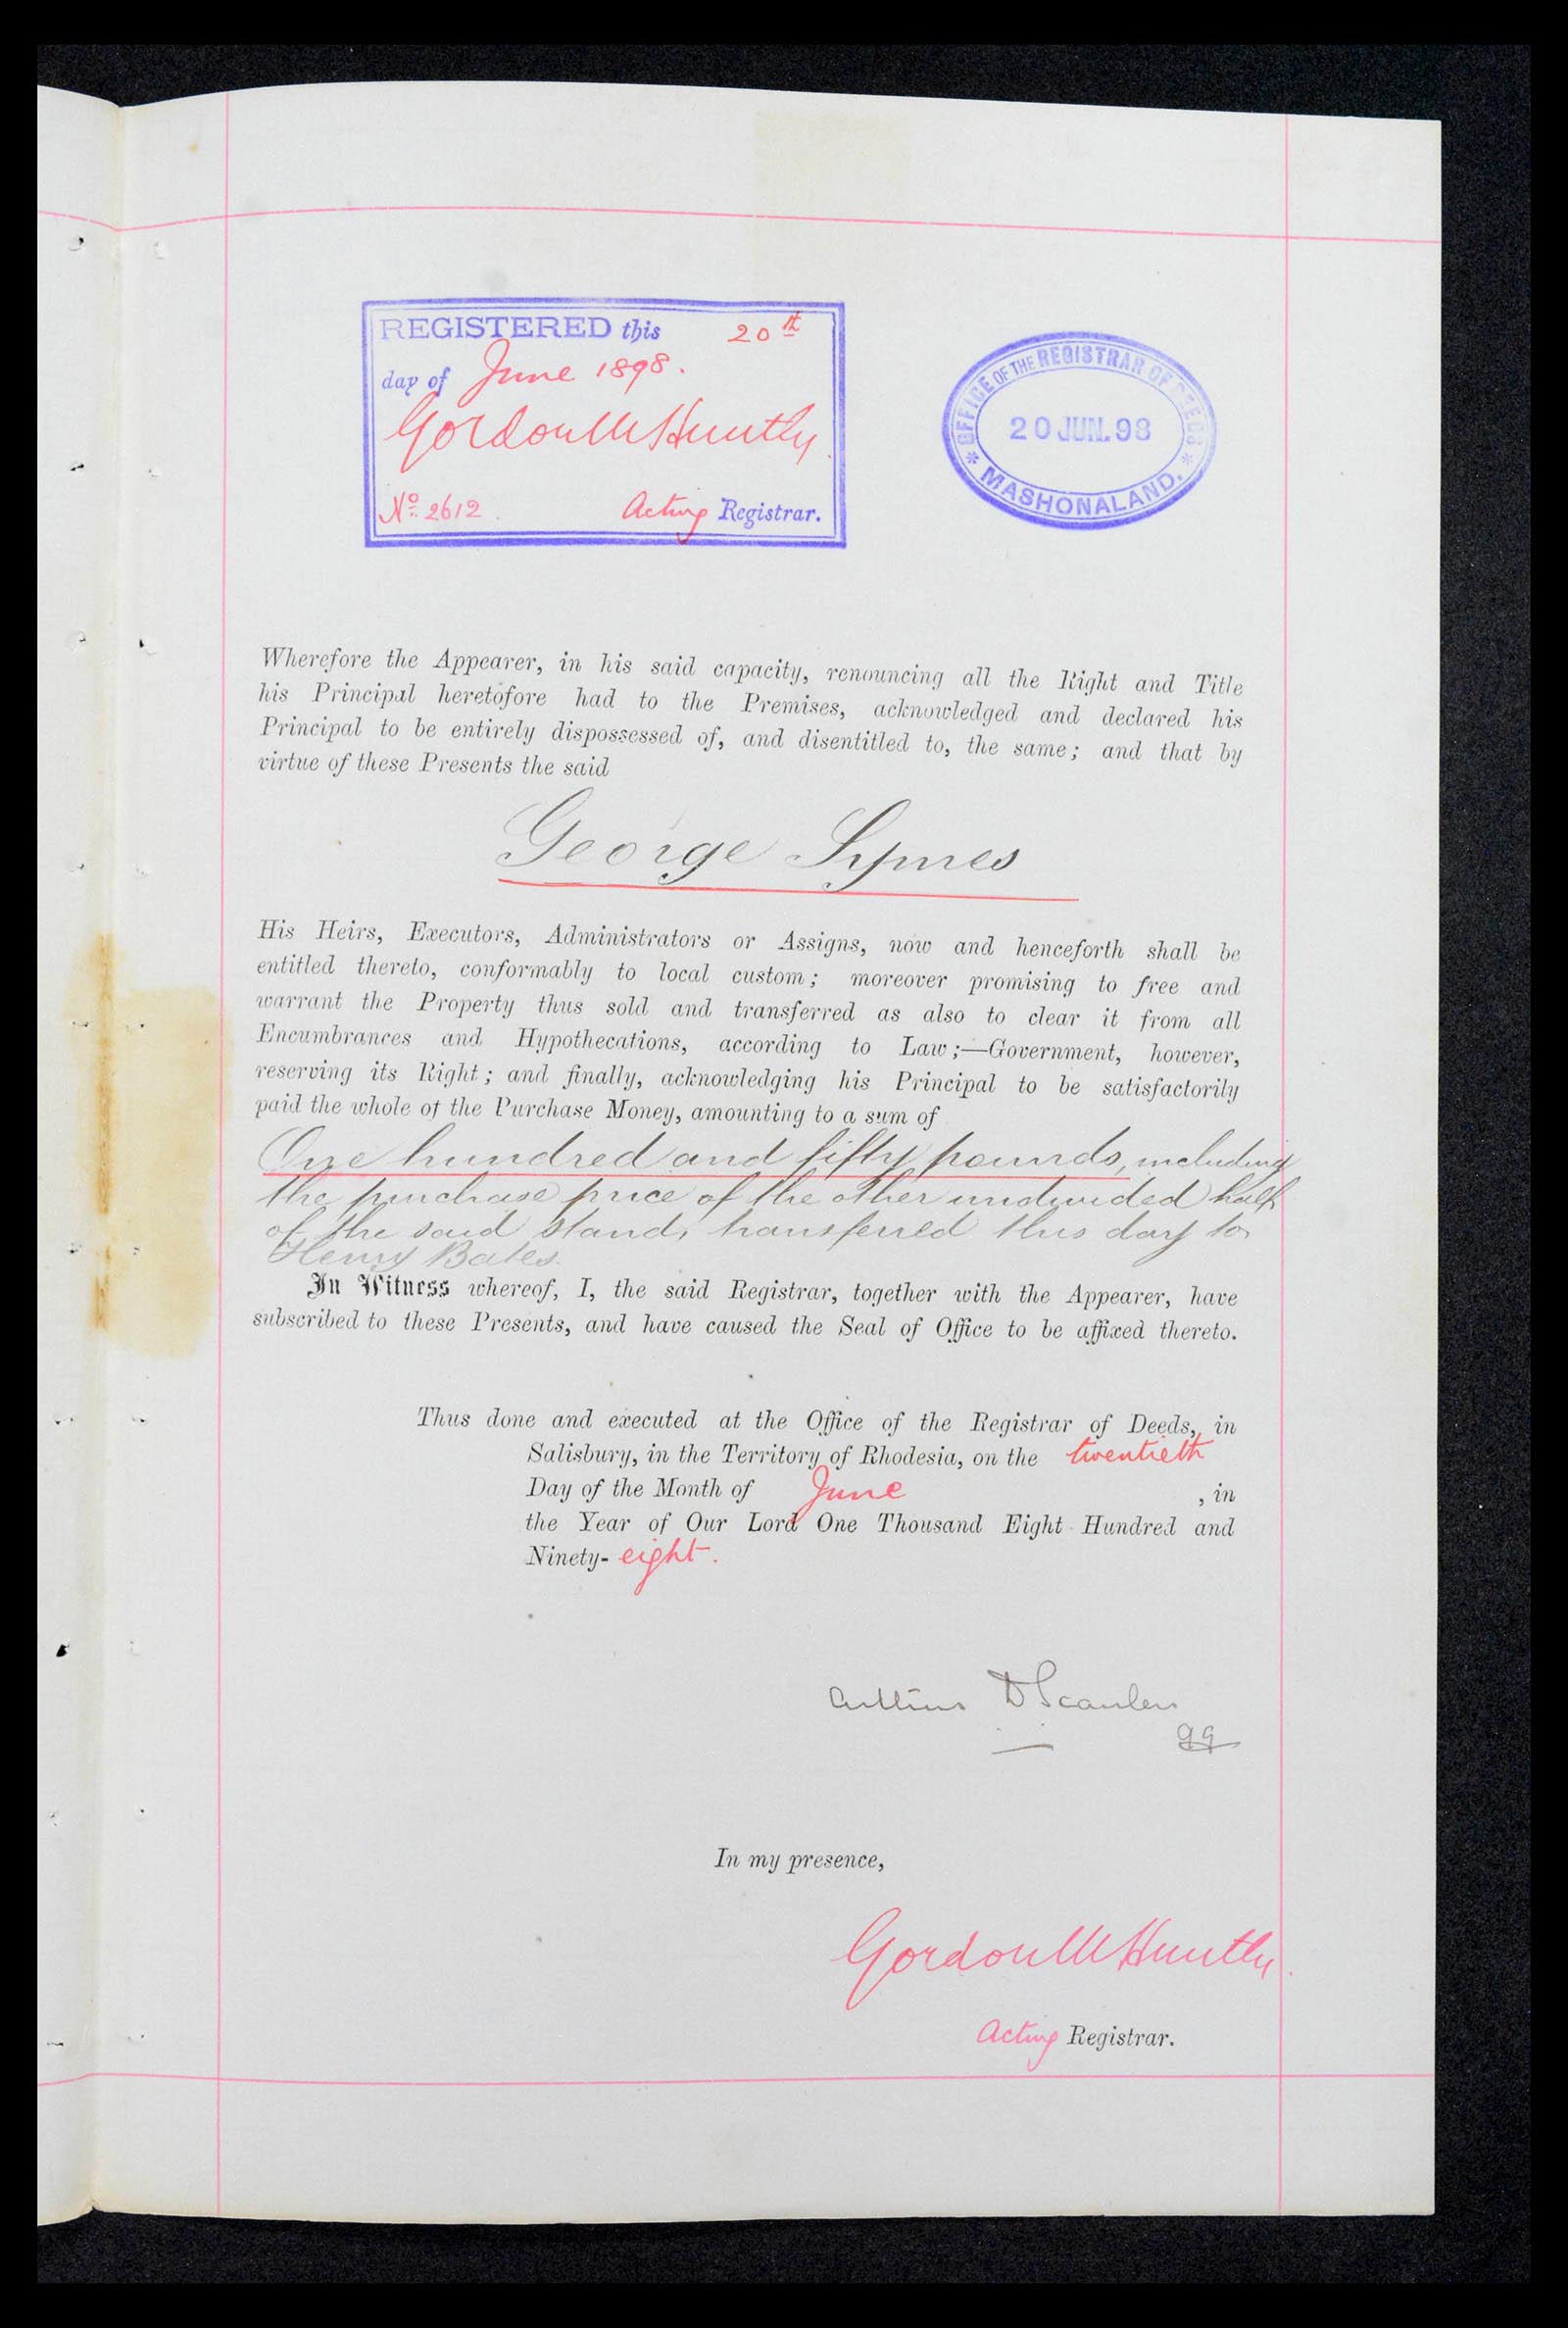 REGISTERED this 20th
day of June 1898.
Gordon W Huntly.
No. 2612. Acting Registrar.
OFFICE OF THE REGISTRAR OF DEEDS
20 JUN. 98
* MASHONALAND. *
Wherefore the Appearer, in his said capacity, renouncing all the Right and Title
his Principal heretofore had to the Premises, acknowledged and declared his
Principal to be entirely dispossessed of, and disentitled to, the same; and that by
virtue of these Presents the said
George Symes
His Heirs, Executors, Administrators or Assigns, now and henceforth shall be
entitled thereto, conformably to local custom; moreover promising to free and
warrant the Property thus sold and transferred as also to clear it from all
Encumbrances and Hypothecations, according to Law;—Government, however,
reserving its Right; and finally, acknowledging his Principal to be satisfactorily
paid the whole of the Purchase Money, amounting to a sum of
One hundred and fifty pounds, including
the purchase price of the other undivided half
of the said Stand, transferred this day to
Henry Bates.
In Witness whereof, I, the said Registrar, together with the Appearer, have
subscribed to these Presents, and have caused the Seal of Office to be affixed thereto.
Thus done and executed at the Office of the Registrar of Deeds, in
Salisbury, in the Territory of Rhodesia, on the twentieth
Day of the Month of June , in
the Year of Our Lord One Thousand Eight Hundred and
Ninety-eight.
Arthur D Scanlen
qq
In my presence,
Gordon W Huntly.
Acting Registrar.